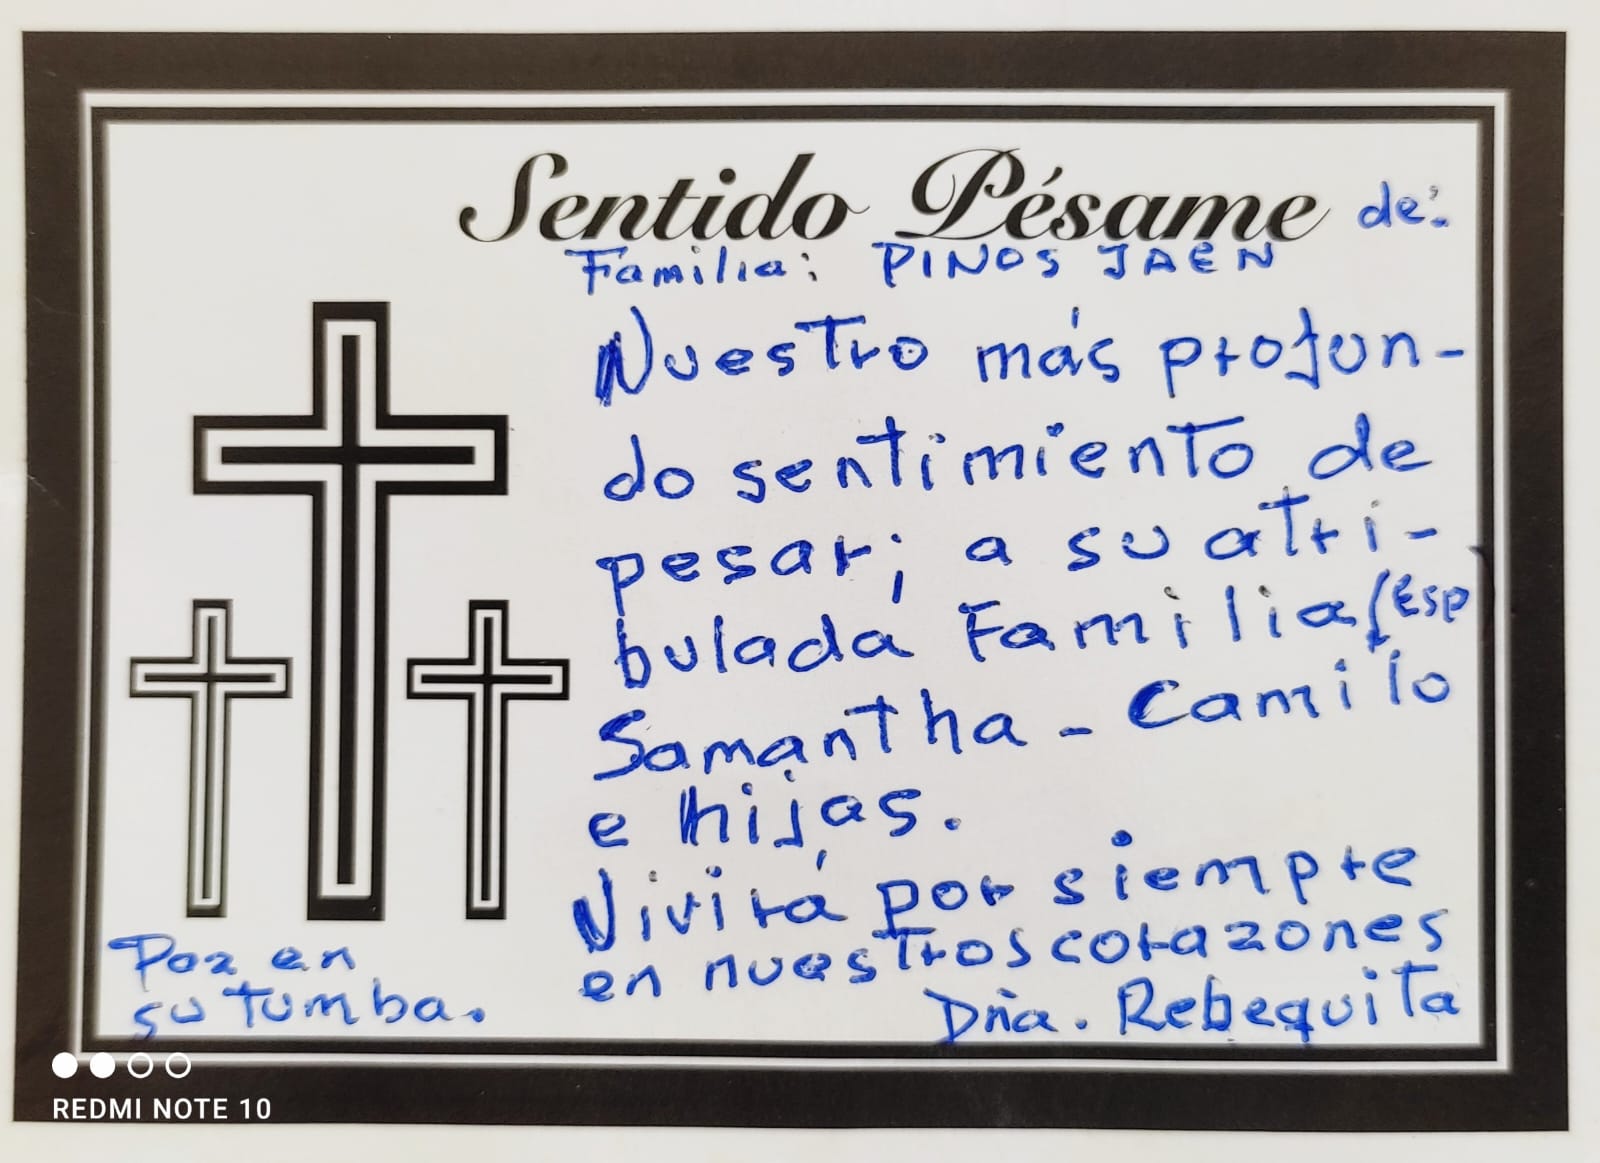 Sentido Pésame de:
Familia: PINOS JAEN
Nuestro más profun-
do sentimiento de
pesar; a su atri-
bulada Familia (Esp
Samantha - Camilo
e hijas.
Vivirá por siempre
en nuestros corazones
Dña. Rebequita
Paz en
su tumba.
REDMI NOTE 10